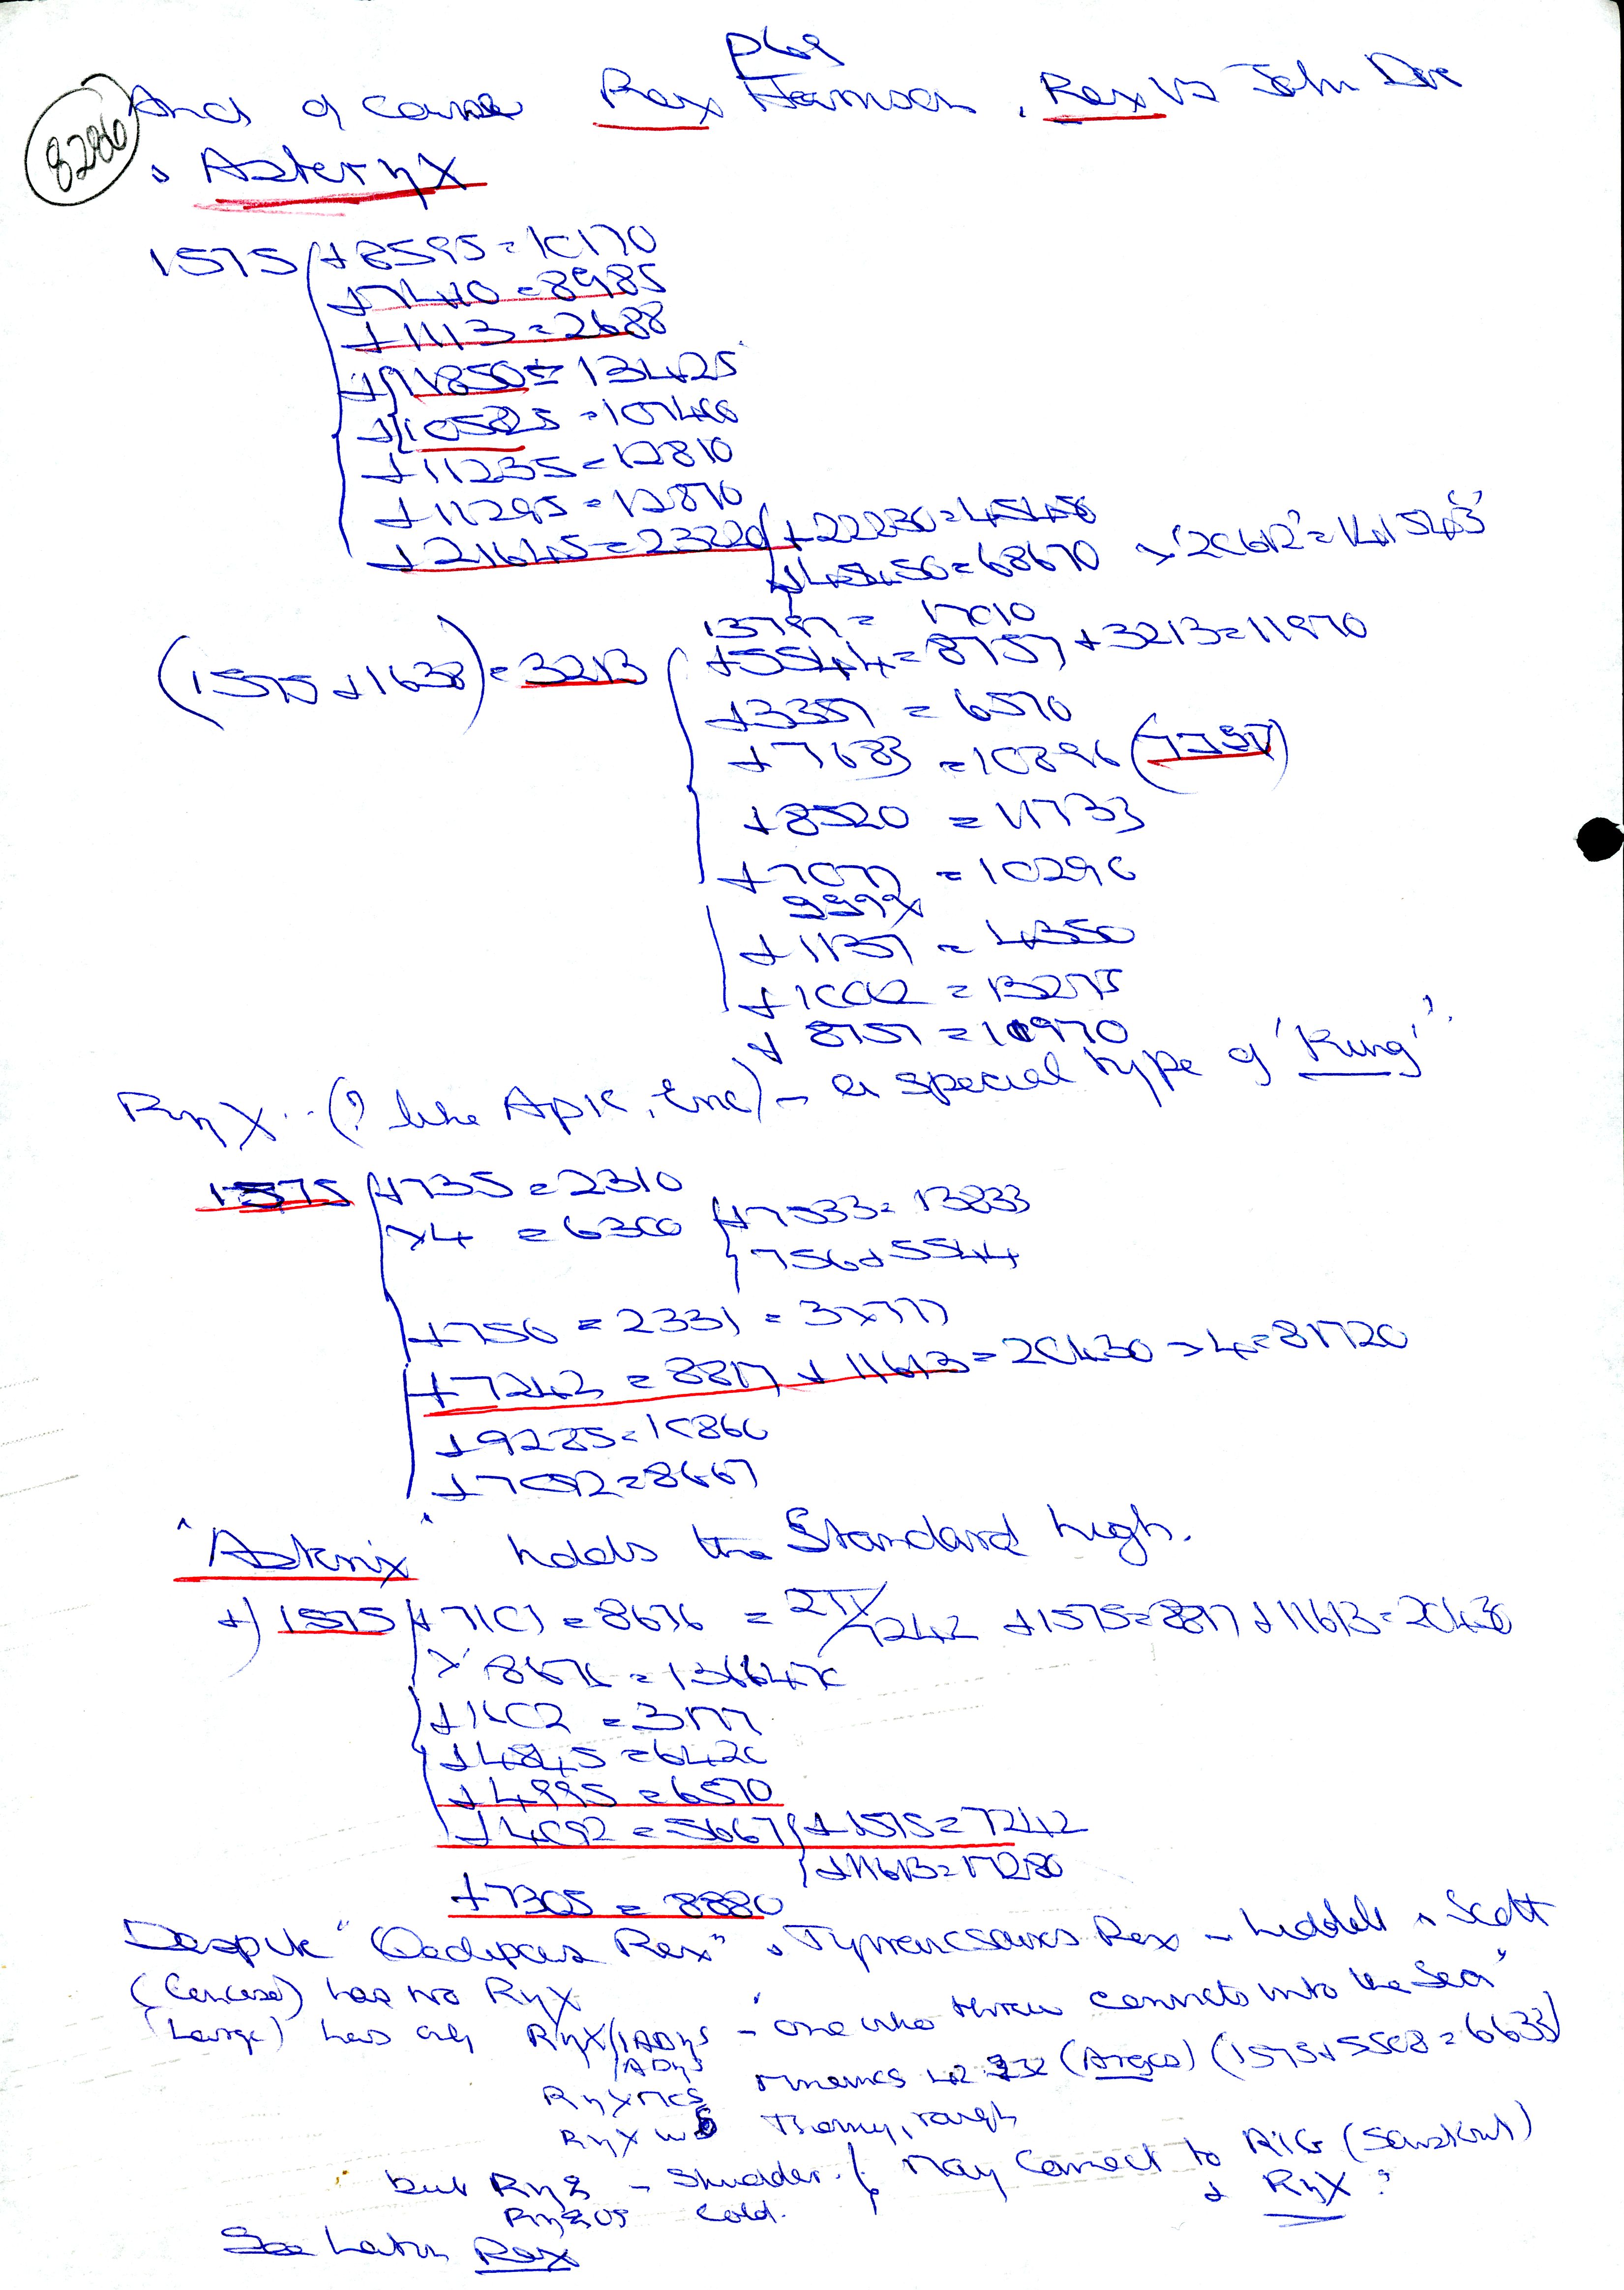 P69
8286
And of course Rex Harrison, Rex vs John Doe
& AsterηX
1575 +8595=10170
+7410=8985
+1113=2688
+11850=13425
+10585=107400
+11235=12810
+11295=12870
+21645=23220 +22230=45450
+45450=68670 >'20612'=141543'
13797= 17010
(1575+1638)=3213 +5544=8757+3213=11970
+3357=6570
+7683=10896 (7797)
+8520=11733
+7077=10290
999x
+1137=4350
+1002=13275
+8757=11970
RηX..(? like Apic, Eric) - a special type of 'King'.
1575 +735=2310
x4=6300 +7533=13833
756+5544
+756=2331=3x777
+7242=8817+11613=20430x4=81720
+9285=10860
+7092=8667
"Asterix" holds the Standard high.
+) 1575 +7101=8676=2π/7242+1575=8817+11613=20430
x 8676=136647x
+1602=3177
+4845=6420
+4995=6570
+4092=5667 +1575=7242
+11613=17280
+7305=8880
Despite "Oedipus Rex" & Tyrranosaurus Rex - Liddell & Scott
(Concise) has no RηX
(Large) has only RηX/IADηS - 'one who threw connets into the Sea"
/ADηS
RηXMOS (Argos) (1575+5508=6633)
Thorny, rough
but Rηg - Shudder. { May Connect to RIG (Sanskrit)
RηgOS Cold. & RηX?
See Latin Rex